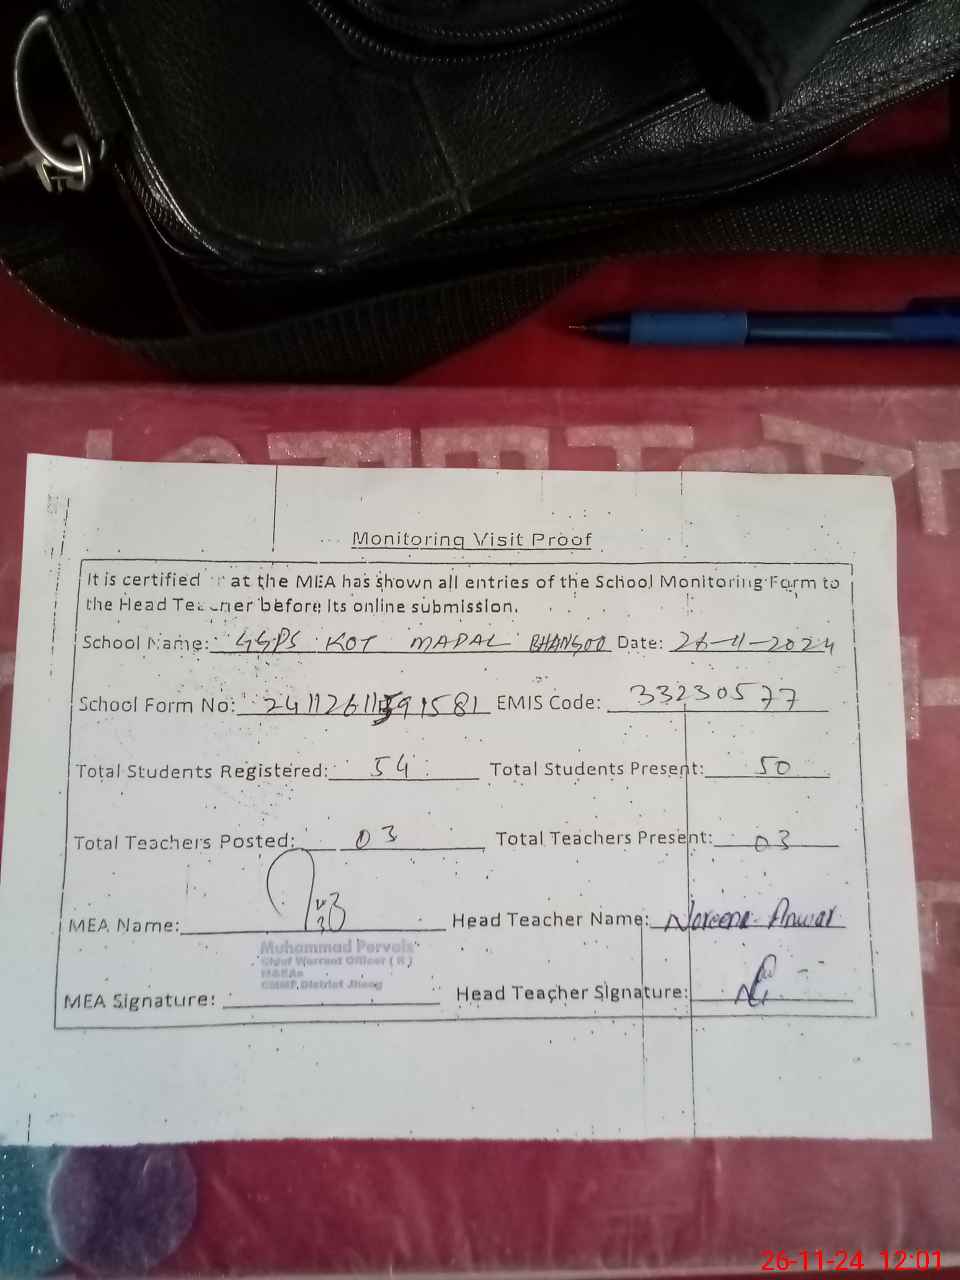 Monitoring Visit Proof
It is certified at the MEA has shown all entries of the School Monitoring Form to
the Head Teacher before its online submission.
School Name: GGPS KOT MAPAL BHANGOO Date: 26-11-2024
School Form No: EMIS Code: 33230577
Total Students Registered: 54 Total Students Present: 50
Total Teachers Posted: 03 Total Teachers Present: 03
MEA Name: Head Teacher Name: Noreena Anwar
Muhammad Pervaiz
Chief Warrant Officer ( R )
M&EAs
CMMF, District Jhang
MEA Signature: Head Teacher Signature:
26-11-24 12:01